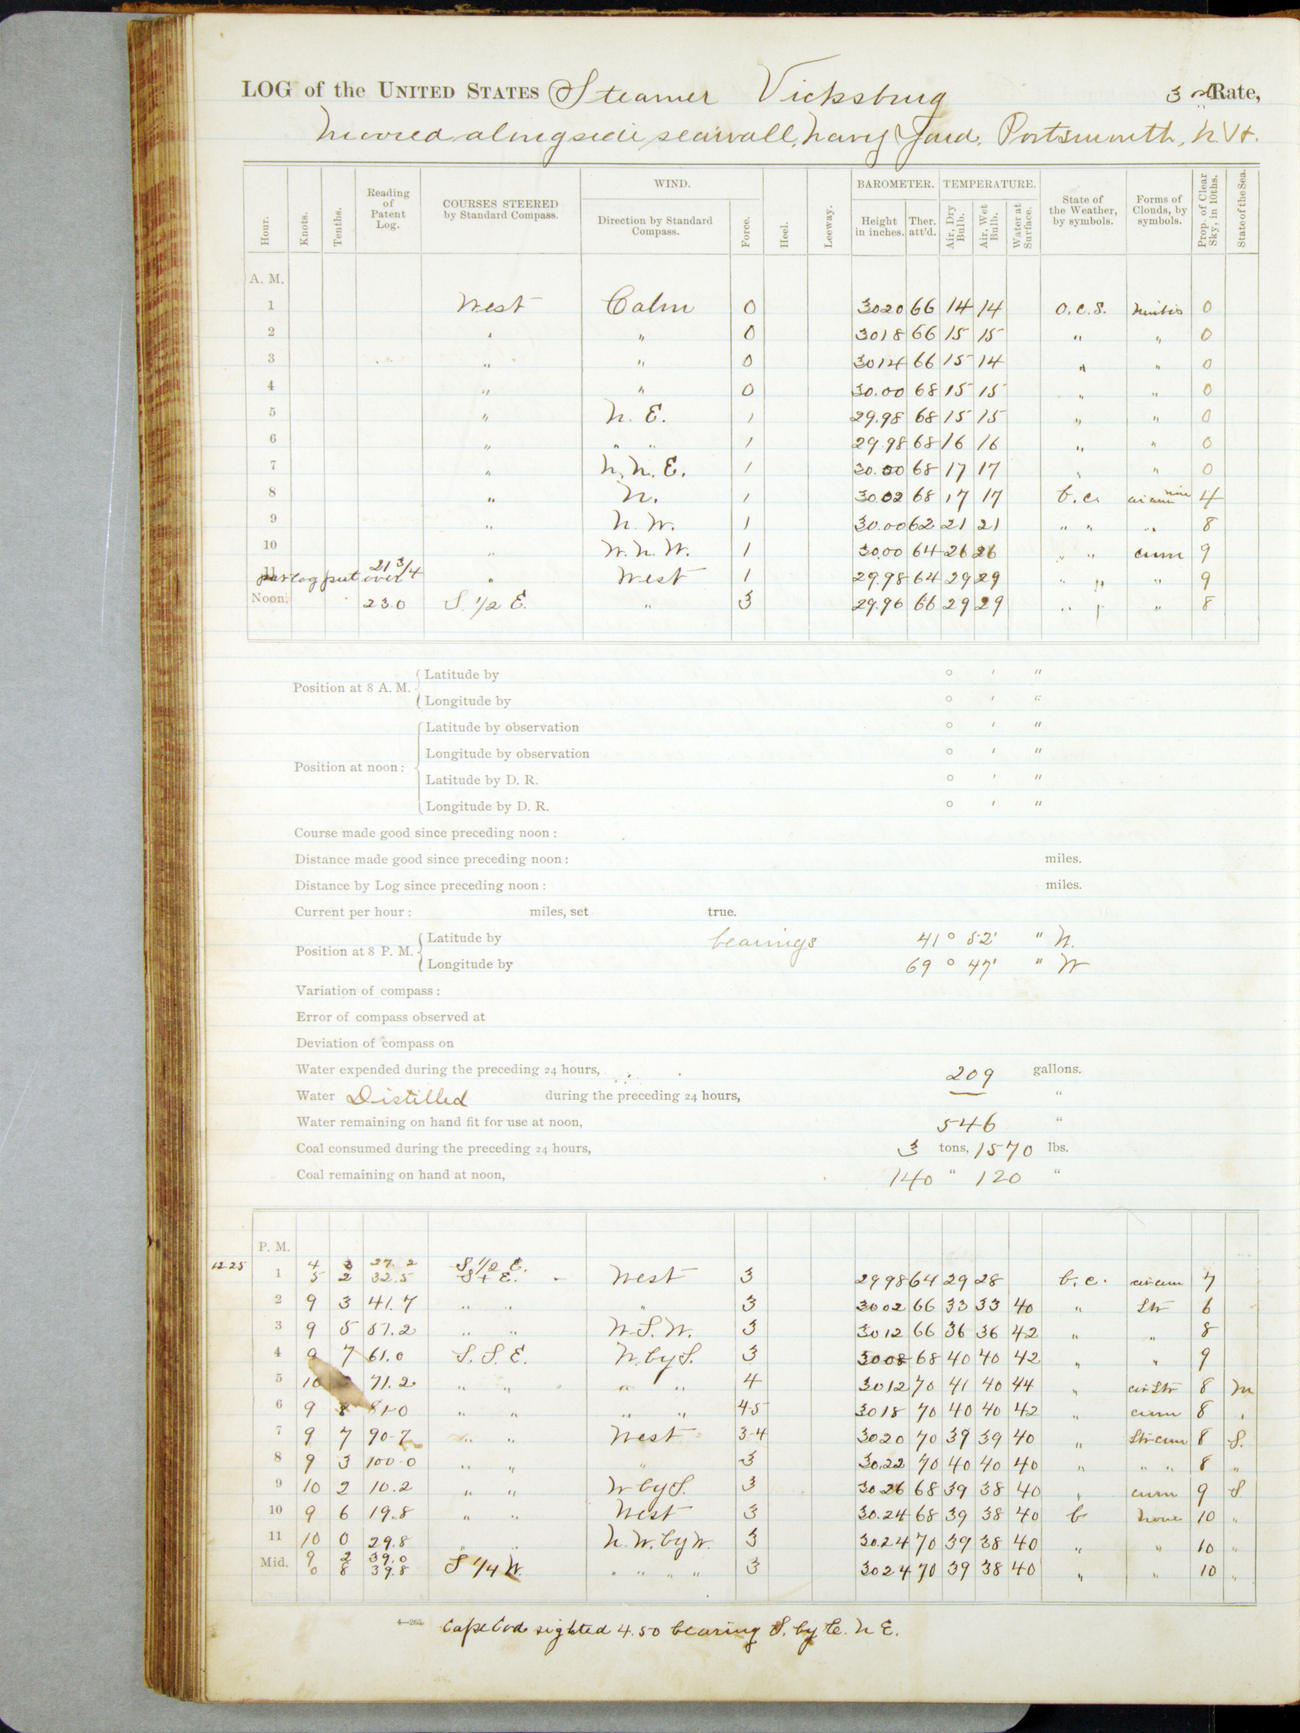 LOG of the UNITED STATES Steamer Vicksburg 3rd Rate,
Moored alongside seawall, Navy Yard, Portsmouth, N.H.
WIND. BAROMETER. TEMPERATURE.
Hour. Knots. Tenths. Reading of Patent Log. COURSES STEERED by Standard Compass. Direction by Standard Compass. Force. Heel. Leeway. Height in inches. Ther. att'd. Air, Dry Bulb. Air, Wet Bulb. Water at Surface. State of the Weather, by symbols. Forms of Clouds, by symbols. Prop. of Clear Sky, in 10ths. State of the Sea.
A. M.
1 West Calm 0 3020 66 14 14 o.c.s. Nimbus 0
2 " " 0 3018 66 15 15 " " 0
3 " " 0 3014 66 15 14 " " 0
4 " " 0 30.00 68 15 15 " " 0
5 " N. E. 1 29.98 68 15 15 " " 0
6 " " " 1 29.98 68 16 16 " " 0
7 " N. N. E. 1 30.00 68 17 17 " " 0
8 " N. 1 30.02 68 17 17 b.c. 4
9 " N. W. 1 30.00 62 21 21 " " " 8
10 " W. N. W. 1 30.00 64 26 26 " " cum 9
11 log put over 21 3/4 " West 1 29.98 64 29 29 " " " 9
Noon. 23.0 S. 1/2 E. " 3 29.96 66 29 29 " " " 8
Position at 8 A. M. Latitude by ° ' "
Longitude by ° ' "
Position at noon: Latitude by observation ° ' "
Longitude by observation ° ' "
Latitude by D. R. ° ' "
Longitude by D. R. ° ' "
Course made good since preceding noon:
Distance made good since preceding noon: miles.
Distance by Log since preceding noon: miles.
Current per hour: miles, set true.
Position at 8 P. M. Latitude by bearings 41 ° 52' " N.
Longitude by 69 ° 47' " W
Variation of compass:
Error of compass observed at
Deviation of compass on
Water expended during the preceding 24 hours, 209 gallons.
Water Distilled during the preceding 24 hours, — "
Water remaining on hand fit for use at noon, 546 "
Coal consumed during the preceding 24 hours, 3 tons, 1570 lbs.
Coal remaining on hand at noon, 140 " 120 "
P. M.
12.25 4 3 27.2 S 1/2 E.
1 5 2 32.5 S + E. West 3 29.98 64 29 28 b.c. cir cum 7
2 9 3 41.7 " " " 3 3002 66 33 33 40 " Str 6
3 9 5 51.2 " " W.S.W. 3 3012 66 36 36 42 " " 8
4 9 7 61.0 S. S. E. W. by S. 3 3008 68 40 40 42 " " 9
5 10 71.2 " " " " 4 3012 70 41 40 44 " cir Str 8 M
6 9 8 81.0 " " " " 4-5 3018 70 40 40 42 " cum 8 "
7 9 7 90.7 " " West 3-4 3020 70 39 39 40 " Str cum 8 S.
8 9 3 100.0 " " " 3 30.22 70 40 40 40 " " " 8 "
9 10 2 10.2 " " W by S. 3 30.26 68 39 38 40 " cum 9 S
10 9 6 19.8 " " West 3 30.24 68 39 38 40 b None 10 "
11 10 0 29.8 " " N. W. by W. 3 30.24 70 39 38 40 " " 10 "
9 2 39.0
Mid. 0 8 39.8 S 1/4 W. " " " " 3 3024 70 39 38 40 " " 10 "
Cape Cod sighted 4.50 bearing S. by E. N E.